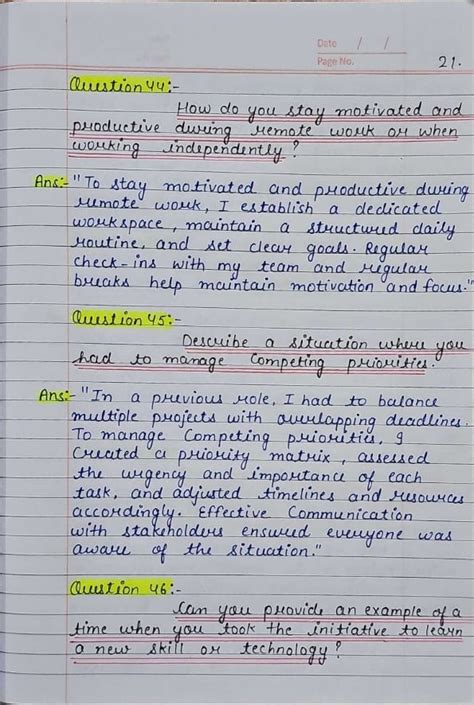 Date / /
Page No. 21.
Question 44:-
How do you stay motivated and
productive during remote work or when
working independently?
Ans:- "To stay motivated and productive during
remote work, I establish a dedicated
workspace, maintain a structured daily
routine, and set clear goals. Regular
check-ins with my team and regular
breaks help maintain motivation and focus."
Question 45:-
Describe a situation where you
had to manage Competing priorities.
Ans:- "In a previous role, I had to balance
multiple projects with overlapping deadlines.
To manage Competing priorities, I
Created a priority matrix, assessed
the urgency and importance of each
task, and adjusted timelines and resources
accordingly. Effective Communication
with stakeholders ensured everyone was
aware of the situation."
Question 46:-
Can you provide an example of a
time when you took the initiative to learn
a new skill or technology?